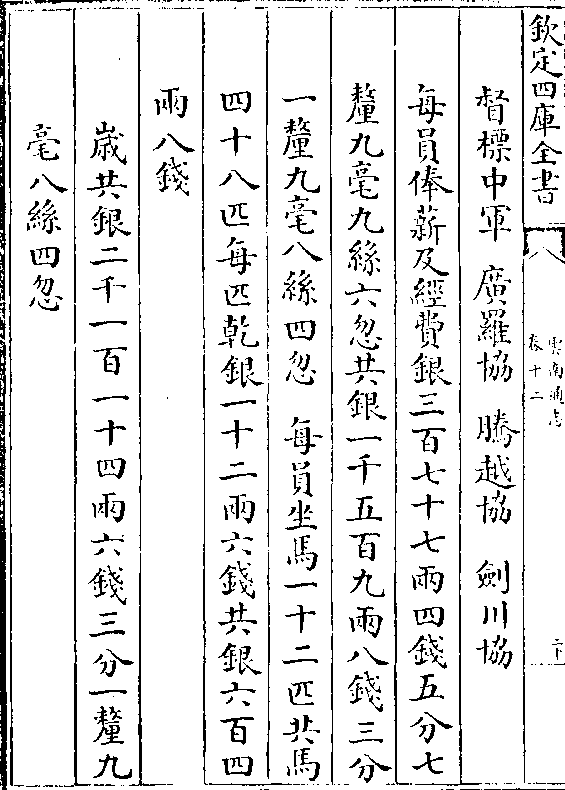 欽定四庫全書
雲南通志
卷十二
督標中軍　廣羅協　騰越協　劍川協
每員俸薪及經費銀三百七十七兩四錢五分七
釐九毫九絲六忽共銀一千五百九兩八錢三分
一釐九毫八絲四忽　每員坐馬一十二匹共馬
四十八匹每匹乾銀一十二兩六錢共銀六百四
兩八錢
歲共銀二千一百一十四兩六錢三分一釐九
毫八絲四忽